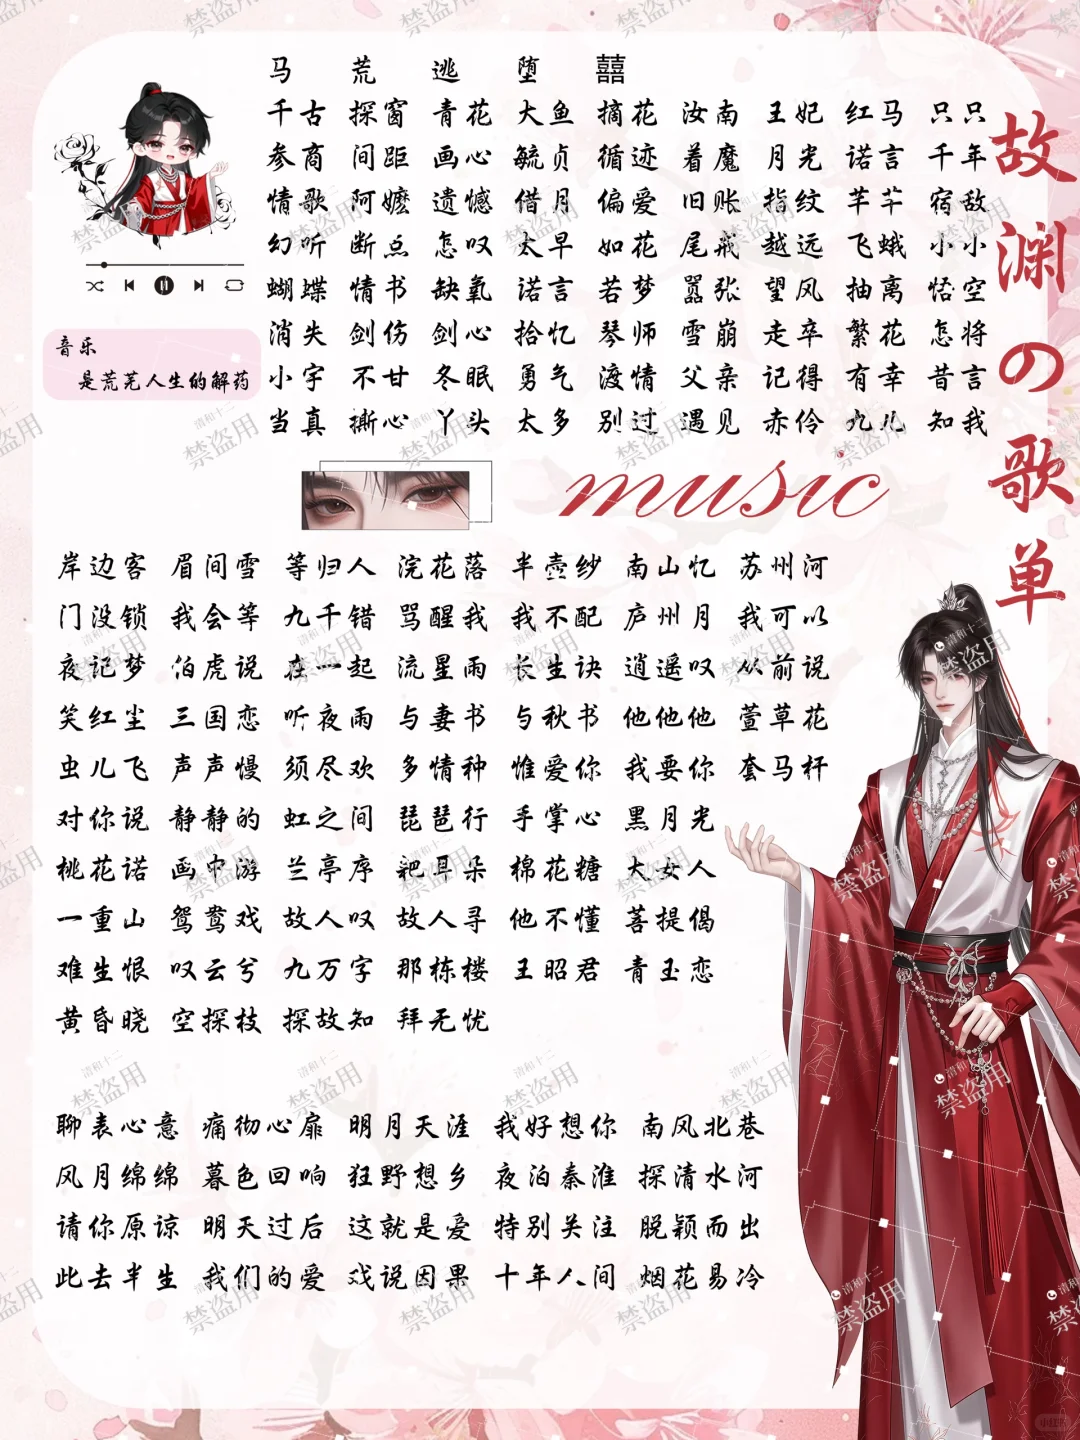 故渊の歌单
马 荒 逃 堕 囍
千古 探窗 青花 大鱼 摘花 汝南 王妃 红马 只只
参商 间距 画心 毓贞 循迹 着魔 月光 诺言 千年
情歌 阿嬷 遗憾 借月 偏爱 旧账 指纹 芊芊 宿敌
幻听 断点 怎叹 太早 如花 尾戒 越远 飞蛾 小小
蝴蝶 情书 缺氧 诺言 若梦 嚣张 望风 抽离 悟空
消失 剑伤 剑心 拾忆 琴师 雪崩 走卒 繁花 怎将
小宇 不甘 冬眠 勇气 渡情 父亲 记得 有幸 昔言
当真 撕心 丫头 太多 别过 遇见 赤伶 九儿 知我
音乐
是荒芜人生的解药
music
岸边客 眉间雪 等归人 浣花落 半壶纱 南山忆 苏州河
门没锁 我会等 九千错 骂醒我 我不配 庐州月 我可以
夜记梦 伯虎说 在一起 流星雨 长生诀 逍遥叹 从前说
笑红尘 三国恋 听夜雨 与妻书 与秋书 他他他 萱草花
虫儿飞 声声慢 须尽欢 多情种 惟爱你 我要你 套马杆
对你说 静静的 虹之间 琵琶行 手掌心 黑月光
桃花诺 画中游 兰亭序 耙耳朵 棉花糖 大女人
一重山 鸳鸯戏 故人叹 故人寻 他不懂 菩提偈
难生恨 叹云兮 九万字 那栋楼 王昭君 青玉恋
黄昏晓 空探枝 探故知 拜无忧
聊表心意 痛彻心扉 明月天涯 我好想你 南风北巷
风月绵绵 暮色回响 狂野想乡 夜泊秦淮 探清水河
请你原谅 明天过后 这就是爱 特别关注 脱颖而出
此去半生 我们的爱 戏说因果 十年人间 烟花易冷
清和十二
禁盗用
小红书